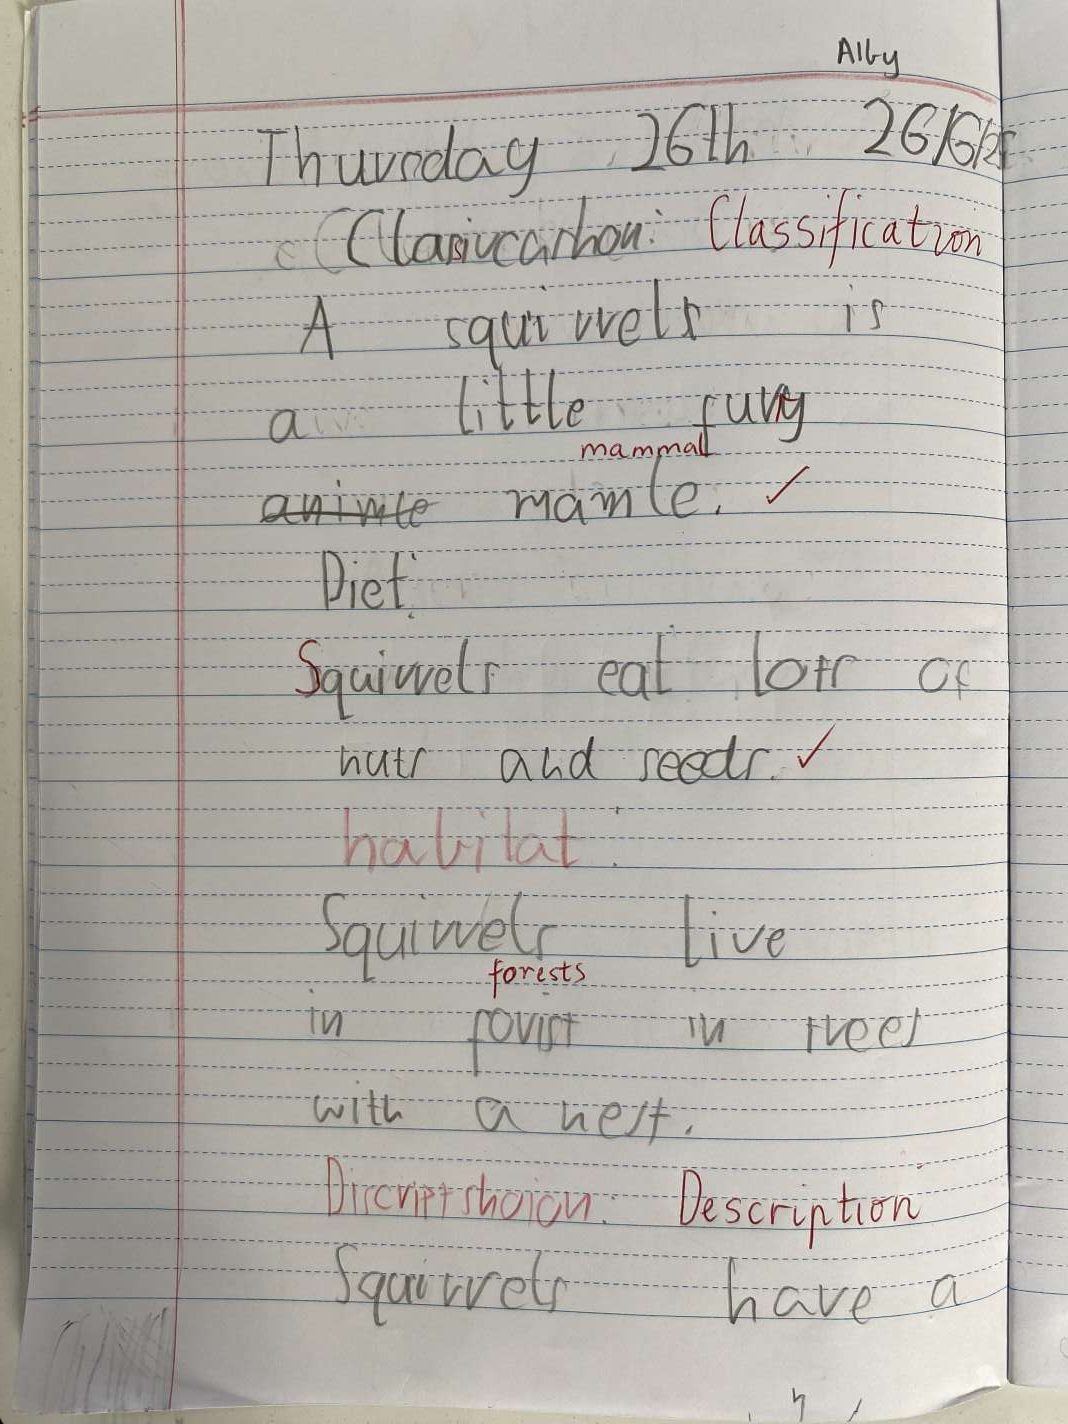 Alby
Thursday 26th 26/6/25
Clasivcarshon: Classification
A squirrels is
a little fury
mammal
animle mamle. ✓
Diet:
Squirrels eat lots of
nuts and seeds. ✓
habitat:
Squirrels live
forests
in forist in trees
with a nest.
Discriptshoion: Description
Squirrels have a